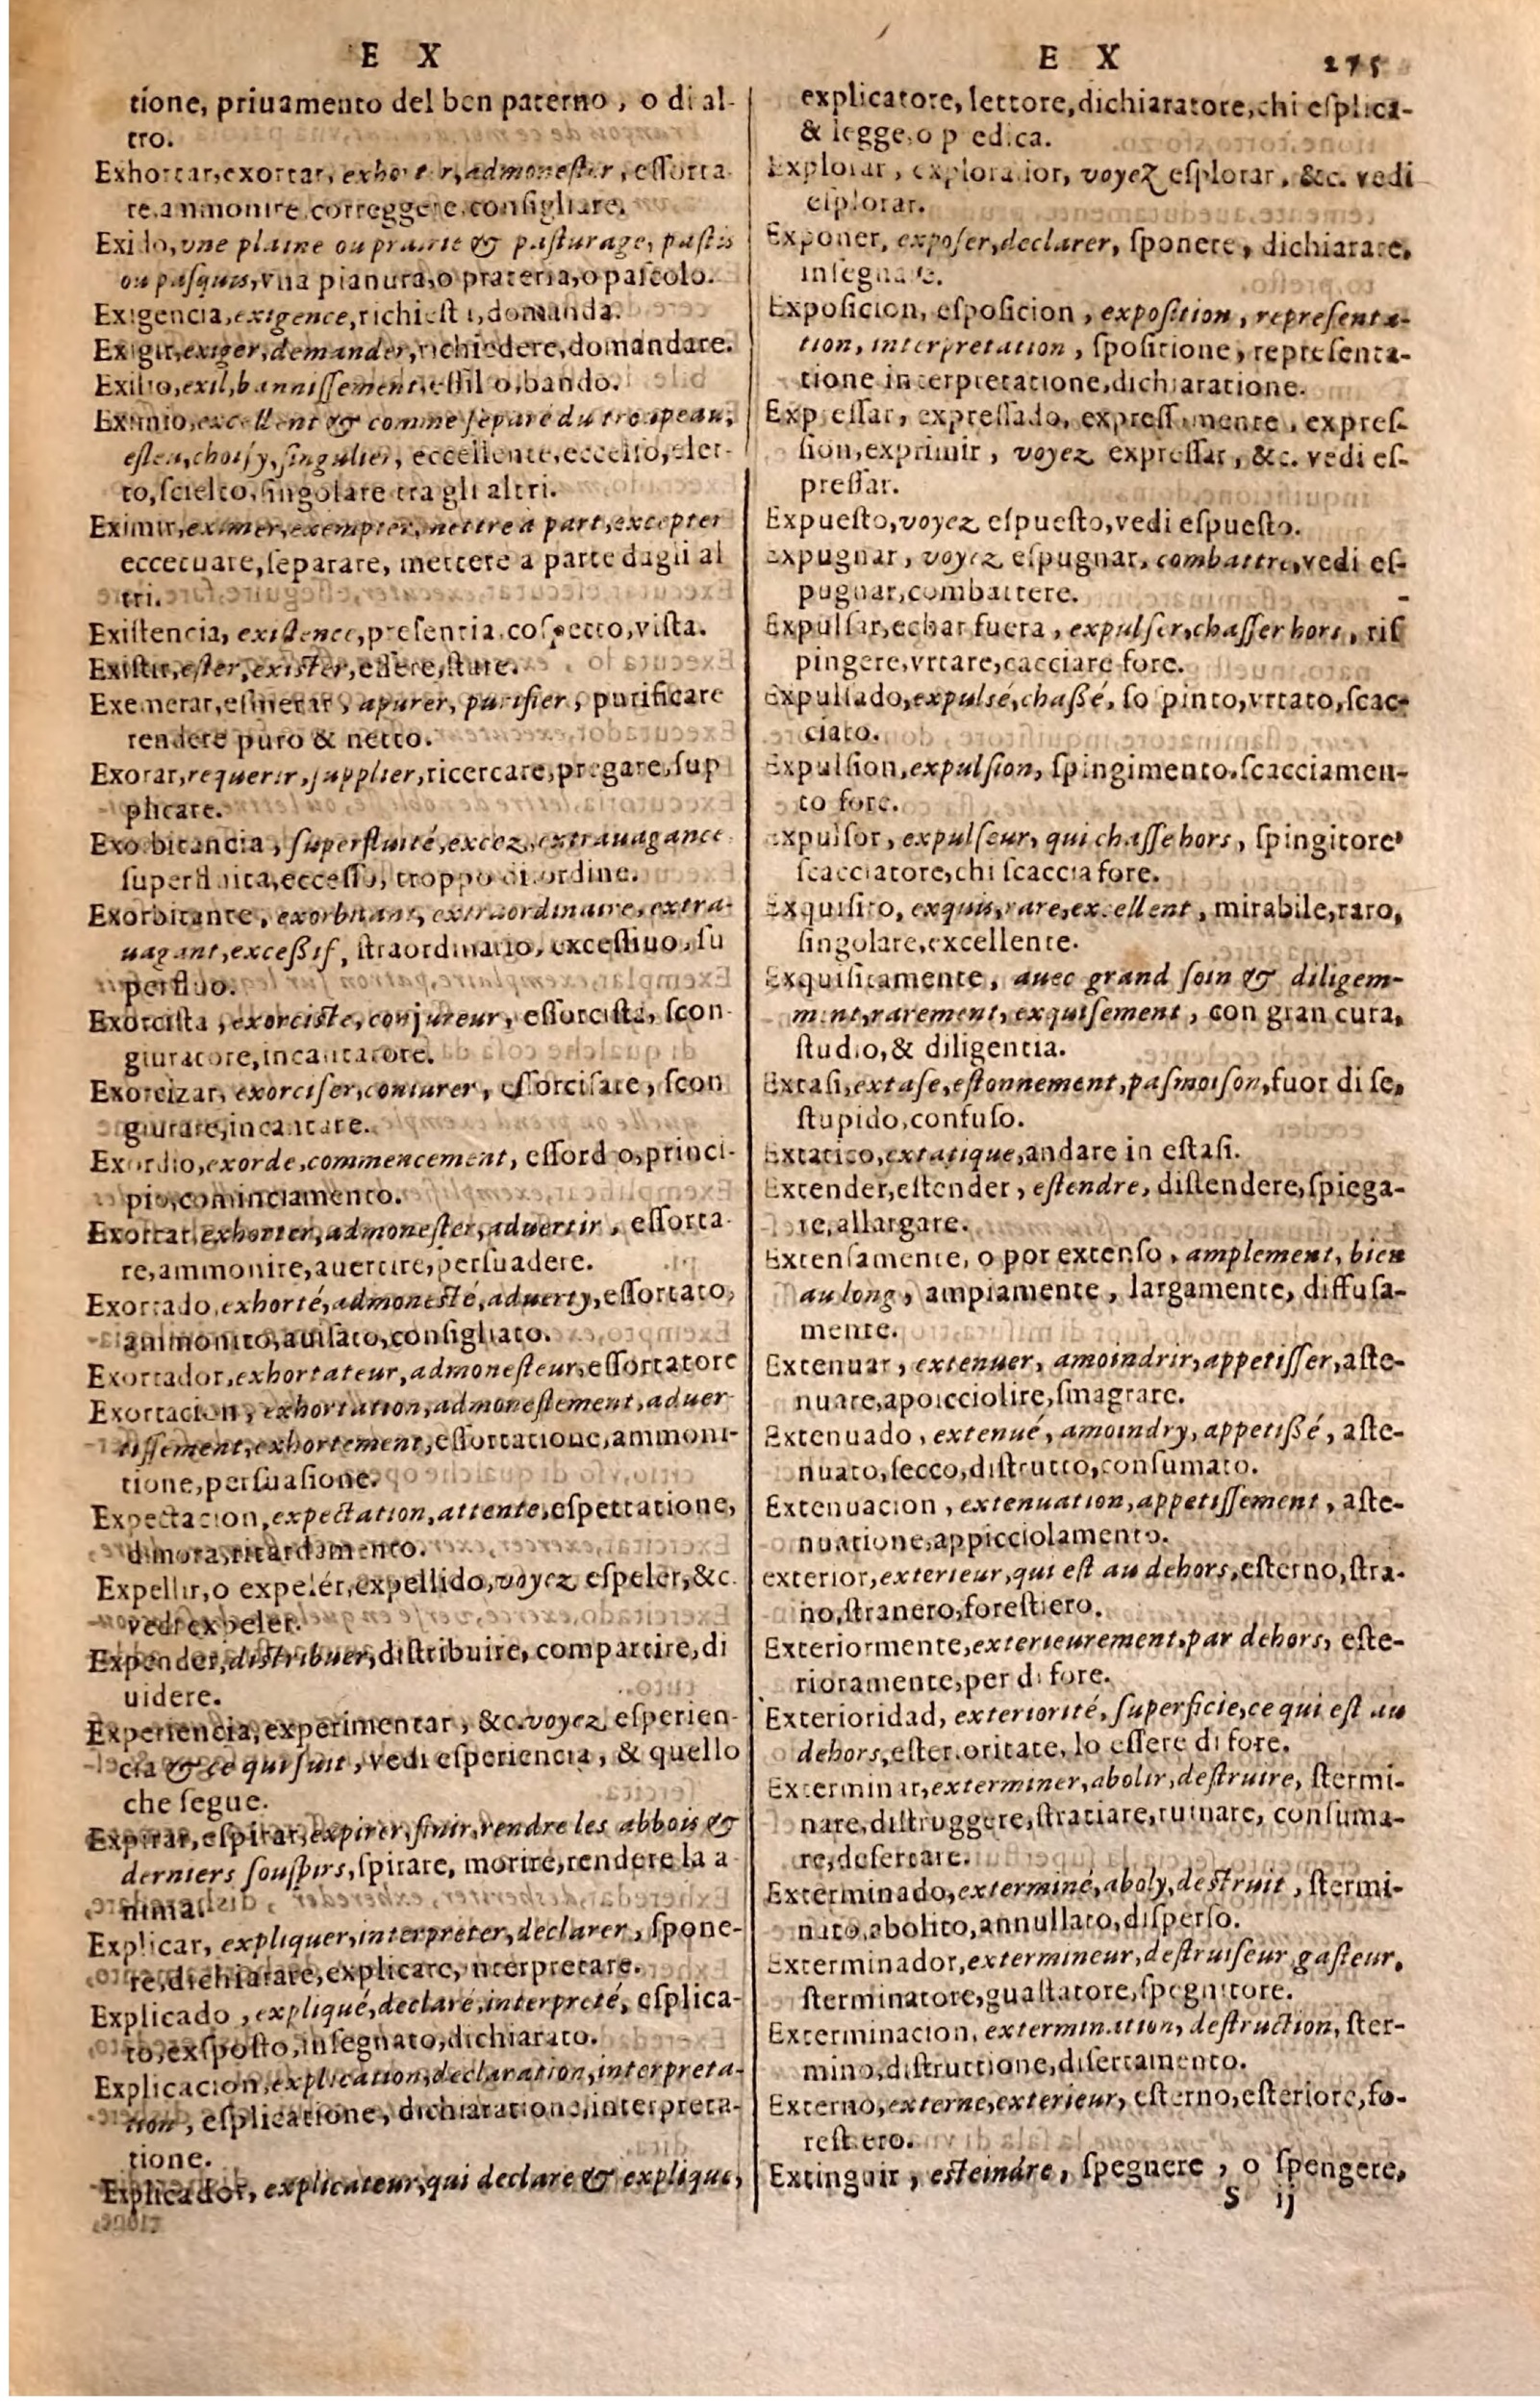 E X
tione, priuamento del ben paterno, o di al-
tro.
Exhortar, exortar, exhorter, admonester, essorta
re, ammonire, correggere, consigliare.
Exido, vne plaine ou prairie & pasturage, pastis
ou pasquis, vna pianura, o prateria, o pascolo.
Exigencia, exigence, richiesta, domanda.
Exigir, exiger, demander, richiedere, domandare.
Exilio, exil, bannissement, essilio, bando.
Eximio, excellent & comme separé du troupeau,
esleu, choisy, singulier, eccellente, eccelso, elet-
to, scielto, singolare tra gli altri.
Eximir, eximer, exempter, mettre à part, excepter
eccettuare, separare, mettere a parte dagli al
tri.
Existencia, existence, presentia, cospetto, vista.
Existir, ester, exister, essere, stare.
Exemerar, esmerar, apurer, purifier, purificare
rendere puro & netto.
Exorar, requerir, supplier, ricercare, pregare, sup
plicare.
Exorbitancia, superfluité, excez, extrauagance
superfluita, eccesso, troppo disordine.
Exorbitante, exorbitant, extraordinaire, extra-
uagant, exceßif, straordinario, excessiuo, su
perfluo.
Exorcista, exorciste, conjureur, essorcista, scon-
giuratore, incantatore.
Exorcizar, exorciser, coniurer, essorcisare, scon
giurare, incantare.
Exordio, exorde, commencement, essordio, princi-
pio, cominciamento.
Exortar, exhorter, admonester, aduertir, essorta-
re, ammonire, auertire, persuadere.
Exortado, exhorté, admonesté, aduerty, essortato,
ammonito, auisato, consigliato.
Exortador, exhortateur, admonesteur, essortatore
Exortacion, exhortation, admonestement, aduer-
tissement, exhortement, essortatione, ammoni-
tione, persuasione.
Expectacion, expectation, attente, espettatione,
dimora, ritardamento.
Expellir, o expelér, expellido, voyez espeler, &c.
vedi expeler.
Expender, distribuer, distribuire, compartire, di
uidere.
Experiencia, experimentar, &c. voyez esperien-
cia & ce qui suit, vedi esperiencia, & quello
che segue.
Expirar, espirar, expirer, finir, rendre les abbois &
derniers souspirs, spirare, morire, rendere la a
nima.
Explicar, expliquer, interpreter, declarer, spone-
re, dichiarare, explicare, interpretare.
Explicado, expliqué, declaré, interpreté, esplica-
to, exsposto, insegnato, dichiarato.
Explicacion, explication, declaration, interpreta-
tion, esplicatione, dichiaratione, interpreta-
tione.
Explicador, explicateur, qui declare & explique,
E X 275
explicatore, lettore, dichiaratore, chi esplica-
& legge, o predica.
Explorar, explorador, voyez esplorar, &c. vedi
esplorar.
Exponer, exposer, declarer, sponere, dichiarare,
insegnare.
Exposicion, esposicion, exposition, representa-
tion, interpretation, spositione, representa-
tione interpretatione, dichiaratione.
Expressar, expressado, expressamente, expres-
sion, exprimir, voyez expressar, &c. vedi es-
pressar.
Expuesto, voyez espuesto, vedi espuesto.
Expugnar, voyez espugnar, combattre, vedi es-
pugnar, combattere.
Expulsar, echar fuera, expulser, chasser hors, ris
pingere, vrtare, cacciare fore.
Expulsado, expulsé, chaßé, sospinto, vrtato, scac-
ciato.
Expulsion, expulsion, spingimento, scacciamen-
to fore.
Expulsor, expulseur, qui chasse hors, spingitore,
scacciatore, chi scaccia fore.
Exquisito, exquis, rare, excellent, mirabile, raro,
singolare, excellente.
Exquisitamente, auec grand soin & diligem-
ment, rarement, exquisement, con gran cura,
studio, & diligentia.
Extasi, extase, estonnement, pasmoison, fuor di se,
stupido, confuso.
Extatico, extatique, andare in estasi.
Extender, estender, estendre, distendere, spiega-
re, allargare.
Extensamente, o por extenso, amplement, bien
au long, ampiamente, largamente, diffusa-
mente.
Extenuar, extenuer, amoindrir, appetisser, aste-
nuare, apoicciolire, smagrare.
Extenuado, extenué, amoindry, appetißé, aste-
nuato, secco, distrutto, consumato.
Extenuacion, extenuation, appetissement, aste-
nuatione, appicciolamento.
exterior, exterieur, qui est au dehors, esterno, stra-
no, stranero, forestiero.
Exteriormente, exterieurement, par dehors, este-
rioramente, per di fore.
Exterioridad, exteriorité, superficie, ce qui est au
dehors, esterioritate, lo essere di fore.
Exterminar, exterminer, abolir, destruire, stermi-
nare, distruggere, stratiare, ruinare, consuma-
re, desertare.
Exterminado, exterminé, aboly, destruit, stermi-
nato, abolito, annullato, disperso.
Exterminador, extermineur, destruiseur, gasteur,
sterminatore, guastatore, spegnitore.
Exterminacion, extermination, destruction, ster-
mino, distruttione, disertamento.
Externo, externe, exterieur, esterno, esteriore, fo-
restiero.
Extinguir, esteindre, spegnere, o spengere,
S ij